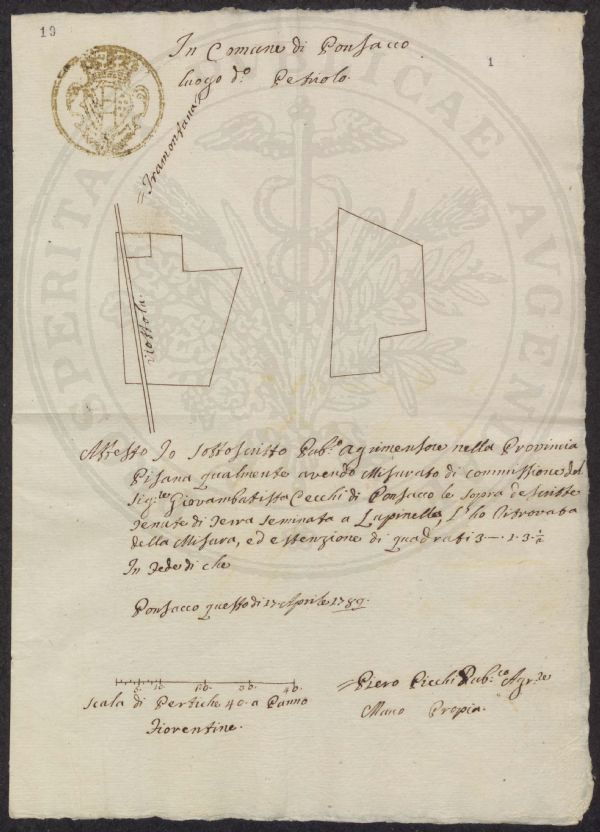 19
1
In Comune di Ponsacco
luogo d.º Petriolo.
Tramontana
Viottola
Attesto Io sottoscritto Pub.º agrimensore nella Provincia
Pisana qualmente avendo Misurato di commissione del
Sig.le Giovambatista Cecchi di Ponsacco le sopra descritte
tenute di terra seminata a Lupinella, l'ho Ritrovata
della Misura, ed estenzione di quadrati 3 — . 1. 3. ½
In fede di che
Ponsacco questo di 17 Aprile 1789.
5. 10. 20. 30. 40.
Scala di Pertiche 40. a Panno
Fiorentine.
Piero Picchi Pub.co Agr.re
Mano Propia.
SPERITA PUBLICAE AVGENDAE